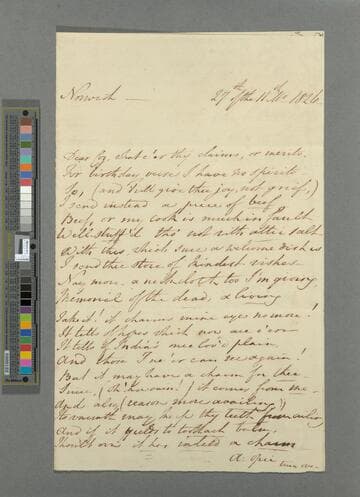 Norwich —
27th of the 11th Mo 1826
Dear Coz, whate'er thy claims, or merits
For birthday verse I have no spirits
So, (and 'twill give thee joy, not grief,)
I send instead a piece of beef
Beef, or my cook is much in fault
Well stuff'd tho' not with attic salt
With this, which sure a welcome dish is
I send thee store of kindest wishes
Nay more, a neckcloth too I'm giving
Memorial of the dead, a living
Take it! it charms mine eyes no more!
It tells of hopes which now are o'er
It tells of India's plain,
And those I ne'er can see again!
But it may have a charm for thee
Since, (Oh! know!) it comes from me—
And also (reason more availing)
To may help thy teeth from ailing
And if it yields to toothach
Thou'lt own it has indeed a charm
A. Opie